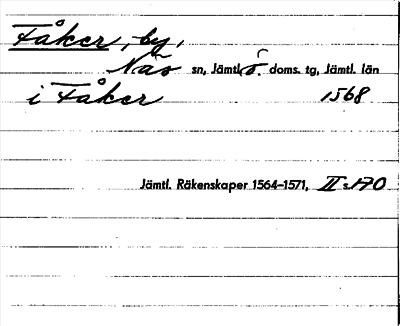 Fåker, by,
Näs sn, Jämtl. ö. doms. tg, Jämtl. län
i Fåker 1568
Jämtl. Räkenskaper 1564–1571, II s. 170